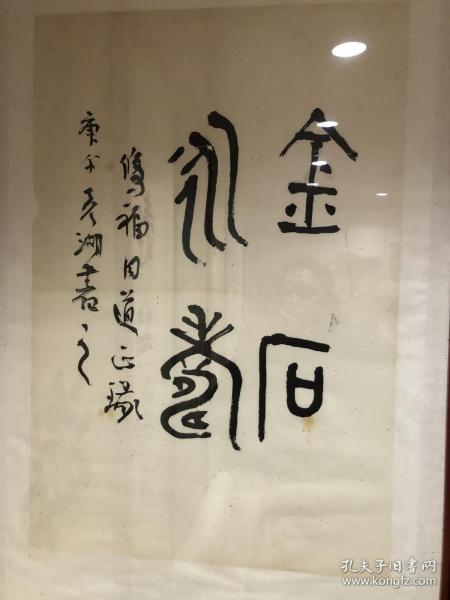 金石
永寿
传福同道正缘
庚午亮湖书之
孔夫子旧书网
www.kongfz.com